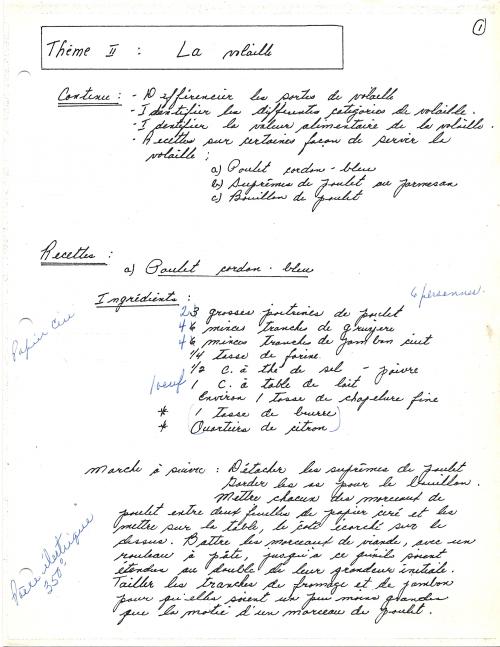 1
Thème II : La volaille
Contenu : - Différencier les sortes de volaille
- Identifier les différentes catégories de volaille.
- Identifier la valeur alimentaire de la volaille.
- Recettes sur certaines façon de servir la
volaille ;
a) Poulet cordon-bleu
b) Suprêmes de poulet au parmesan
c) Bouillon de poulet
Recettes :
a) Poulet cordon-bleu
Ingrédients :
6 personnes.
2 3 grosses poitrines de poulet
Papier ciré
4 6 minces tranche de gruyère
4 6 minces tranches de jambon cuit
1/4 tasse de farine
1/2 c. à thé de sel - poivre
1 oeuf 1 c. à table de lait
Environ 1 tasse de chapelure fine
* (1 tasse de beurre)
* (Quartiers de citron)
Marche à suivre : Détacher les suprêmes de poulet
Garder les os pour le bouillon.
Mettre chacun des morceaux de
poulet entre deux feuilles de papier ciré et les
mettre sur la table, le côté écorché sur le
dessus. Battre les morceaux de viande, avec un
rouleau à pâte, jusqu'à ce qu'ils soient
étendus au double de leur grandeur initiale.
Tailler les tranches de fromage et de jambon
pour qu'elles soient un peu moins grandes
que la motié d'un morceau de poulet.
électrique
350°